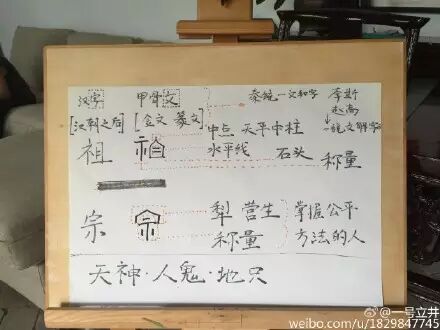 汉字 甲骨文 秦统一文和字 李斯
[汉朝之后] [金文 篆文] 赵高
中点 天平中柱 说文解字
祖 祖 水平线 石头 称量
宗 宗 犁 营生 掌握公平
称量 方法的人
天神·人鬼·地只
@一号立井
weibo.com/u/1829847745